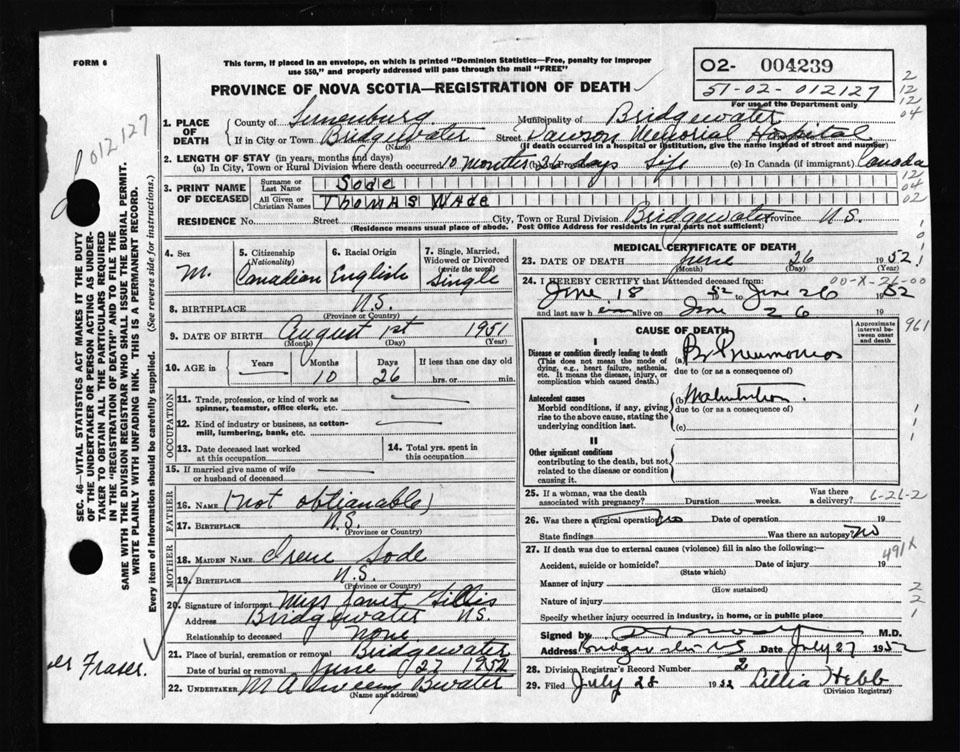 FORM 6
This form, if placed in an envelope, on which is printed "Dominion Statistics—Free, penalty for improper
use $50," and properly addressed will pass through the mail "FREE"
PROVINCE OF NOVA SCOTIA—REGISTRATION OF DEATH
02- 004239
51-02-012127
For use of the Department only
2
12
12
04
012127
1. PLACE OF DEATH
County of Lunenburg Municipality of Bridgewater
If in City or Town Bridgewater Street Dawson Memorial Hospital
(Name) (If death occurred in a hospital or institution, give the name instead of street and number)
2. LENGTH OF STAY (in years, months and days)
(a) In City, Town or Rural Division where death occurred 10 months 26 days Life (c) In Canada (if immigrant) Canada
3. PRINT NAME OF DECEASED
Surname or Last Name Sode
All Given or Christian Names Thomas Wade
12
04
02
RESIDENCE No. Street City, Town or Rural Division Bridgewater Province N.S.
(Residence means usual place of abode. Post Office Address for residents in rural parts not sufficient)
4. Sex M.
5. Citizenship (Nationality) Canadian
6. Racial Origin English
7. Single, Married, Widowed or Divorced (write the word) Single
8. BIRTHPLACE N.S.
(Province or Country)
9. DATE OF BIRTH August 1st 1951
(Month) (Day) (Year)
10. AGE in Years Months Days If less than one day old
— 10 26 hrs. or min.
OCCUPATION
11. Trade, profession, or kind of work as
spinner, teamster, office clerk, etc. —
12. Kind of industry or business, as cotton-
mill, lumbering, bank, etc. —
13. Date deceased last worked
at this occupation
14. Total yrs. spent in
this occupation
15. If married give name of wife
or husband of deceased —
FATHER
16. NAME (not obtianable)
17. BIRTHPLACE N.S.
(Province or Country)
MOTHER
18. MAIDEN NAME Irene Sode
19. BIRTHPLACE N.S.
(Province or Country)
20. Signature of informant Janet Gillis
Address Bridgewater N.S.
Relationship to deceased none
21. Place of burial, cremation or removal Bridgewater
Date of burial or removal June 27 1952
22. UNDERTAKER M A Sweeny Bwater
(Name and address)
MEDICAL CERTIFICATE OF DEATH
23. DATE OF DEATH June 26 1952
(Month) (Day) (Year)
24. I HEREBY CERTIFY that I attended deceased from: 00-X-26-00
June 18 52 to June 26 1952
and last saw him alive on June 26 19
CAUSE OF DEATH
Approximate interval between onset and death
961
I
Disease or condition directly leading to death
(This does not mean the mode of
dying, e.g., heart failure, asthenia,
etc. It means the disease, injury, or
complication which caused death.)
(a) Br Pneumonia
due to (or as a consequence of)
Antecedent causes
Morbid conditions, if any, giving
rise to the above cause, stating the
underlying condition last.
(b) Malnutrition.
due to (or as a consequence of)
(c)
II
Other significant conditions
contributing to the death, but not
related to the disease or condition
causing it.
25. If a woman, was the death
associated with pregnancy? Duration weeks. Was there a delivery? 6-26-2
26. Was there a surgical operation? no Date of operation 19
State findings Was there an autopsy? No
27. If death was due to external causes (violence) fill in also the following:—
491X
Accident, suicide or homicide? Date of injury 19
(State which)
Manner of injury
(How sustained)
Nature of injury
Specify whether injury occurred in industry, in home, or in public place
2
2
1
Signed by M.D.
Address Bridgewater NS Date July 27 1952
28. Division Registrar's Record Number 2
29. Filed July 28 1952 Lillia Hebb
(Division Registrar)
SEC. 46—VITAL STATISTICS ACT MAKES IT THE DUTY
OF THE UNDERTAKER OR PERSON ACTING AS UNDER-
TAKER TO OBTAIN ALL THE PARTICULARS REQUIRED
IN THE "REGISTRATION OF DEATH" AND TO FILE THE
SAME WITH THE DIVISION REGISTRAR WHO SHALL ISSUE THE BURIAL PERMIT.
WRITE PLAINLY WITH UNFADING INK. THIS IS A PERMANENT RECORD.
Every item of Information should be carefully supplied. (See reverse side for instructions.)
Fraser.